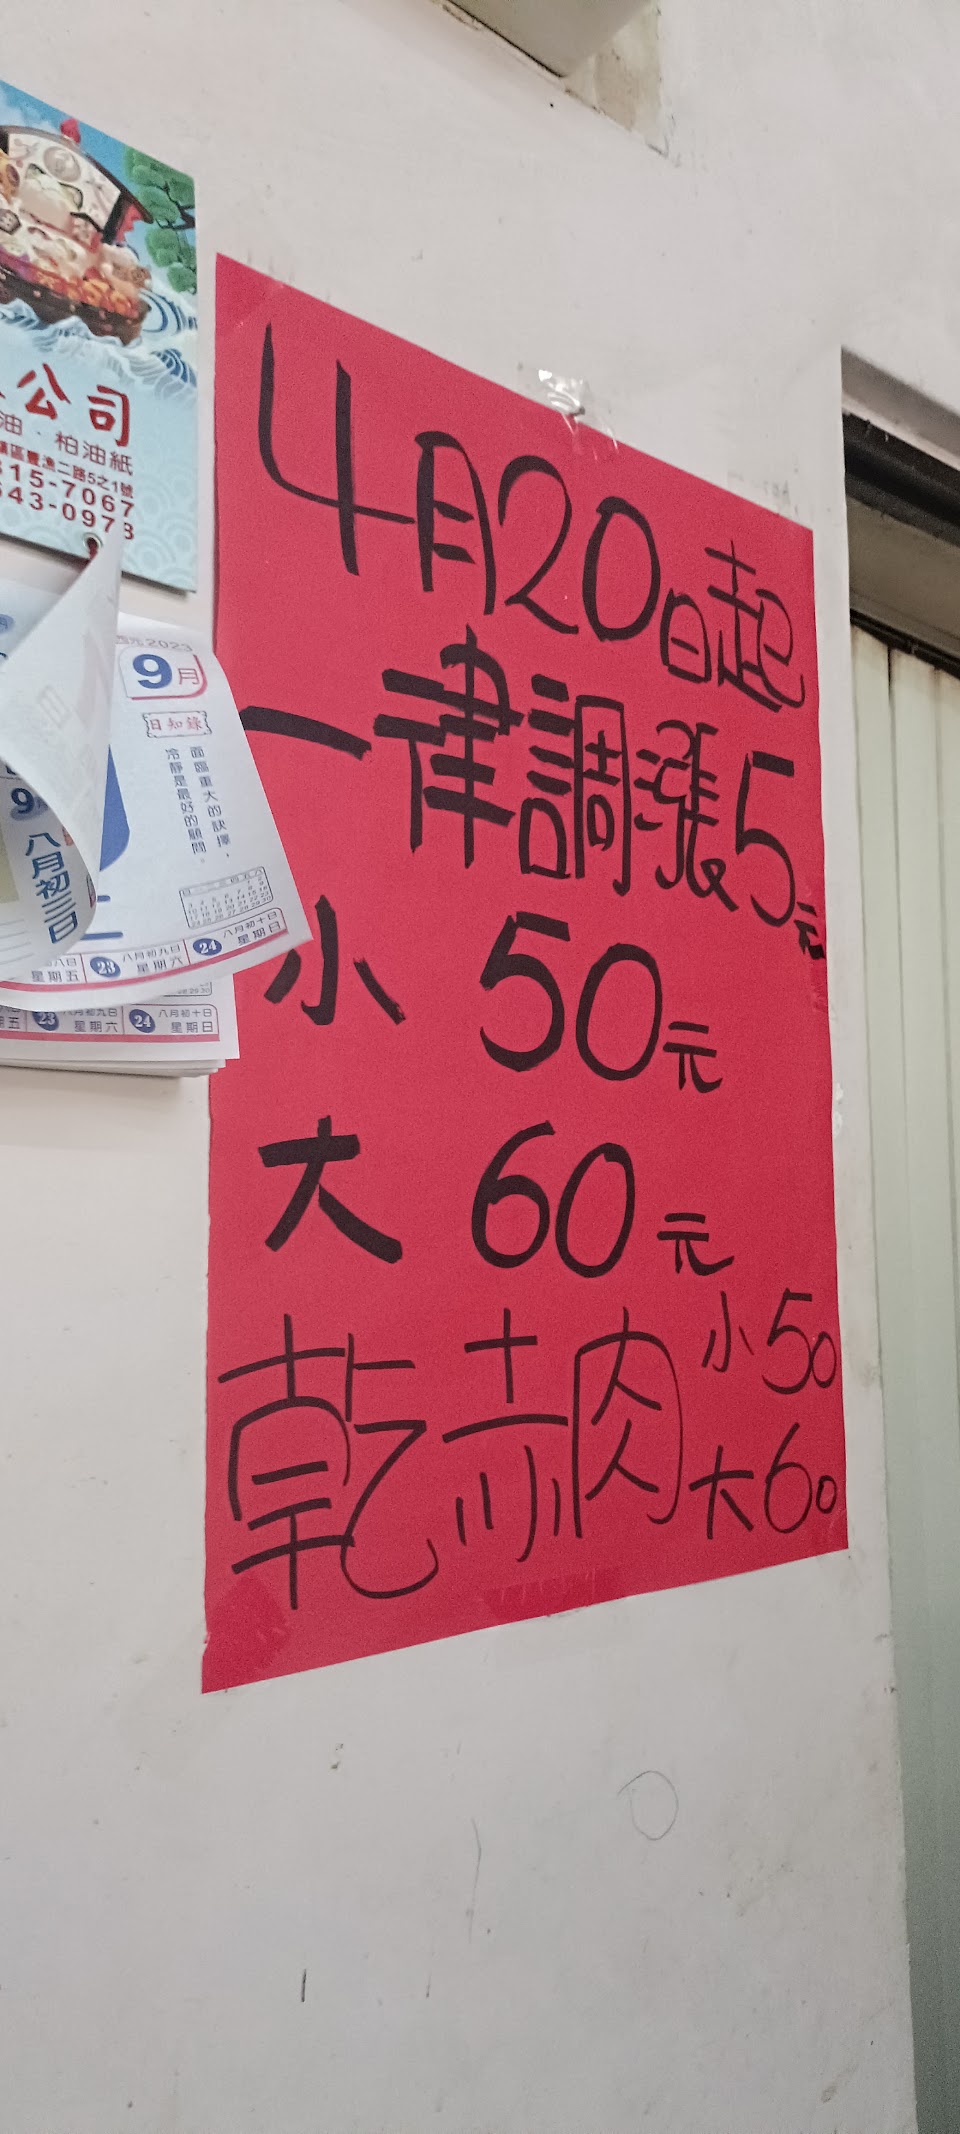 公司
油．柏油紙
鎮區豐漁二路5之1號
815-7067
543-0973
西元2023
9月
日知錄
面臨重大的訣擇，
冷靜是最好的顧問。
八月初三日
23 八月初九日 星期六
24 八月初十日 星期日
23 八月初九日 星期六
24 八月初十日 星期日
4月20日起
一律調漲5元
小 50元
大 60元
乾赤肉 小50
大60